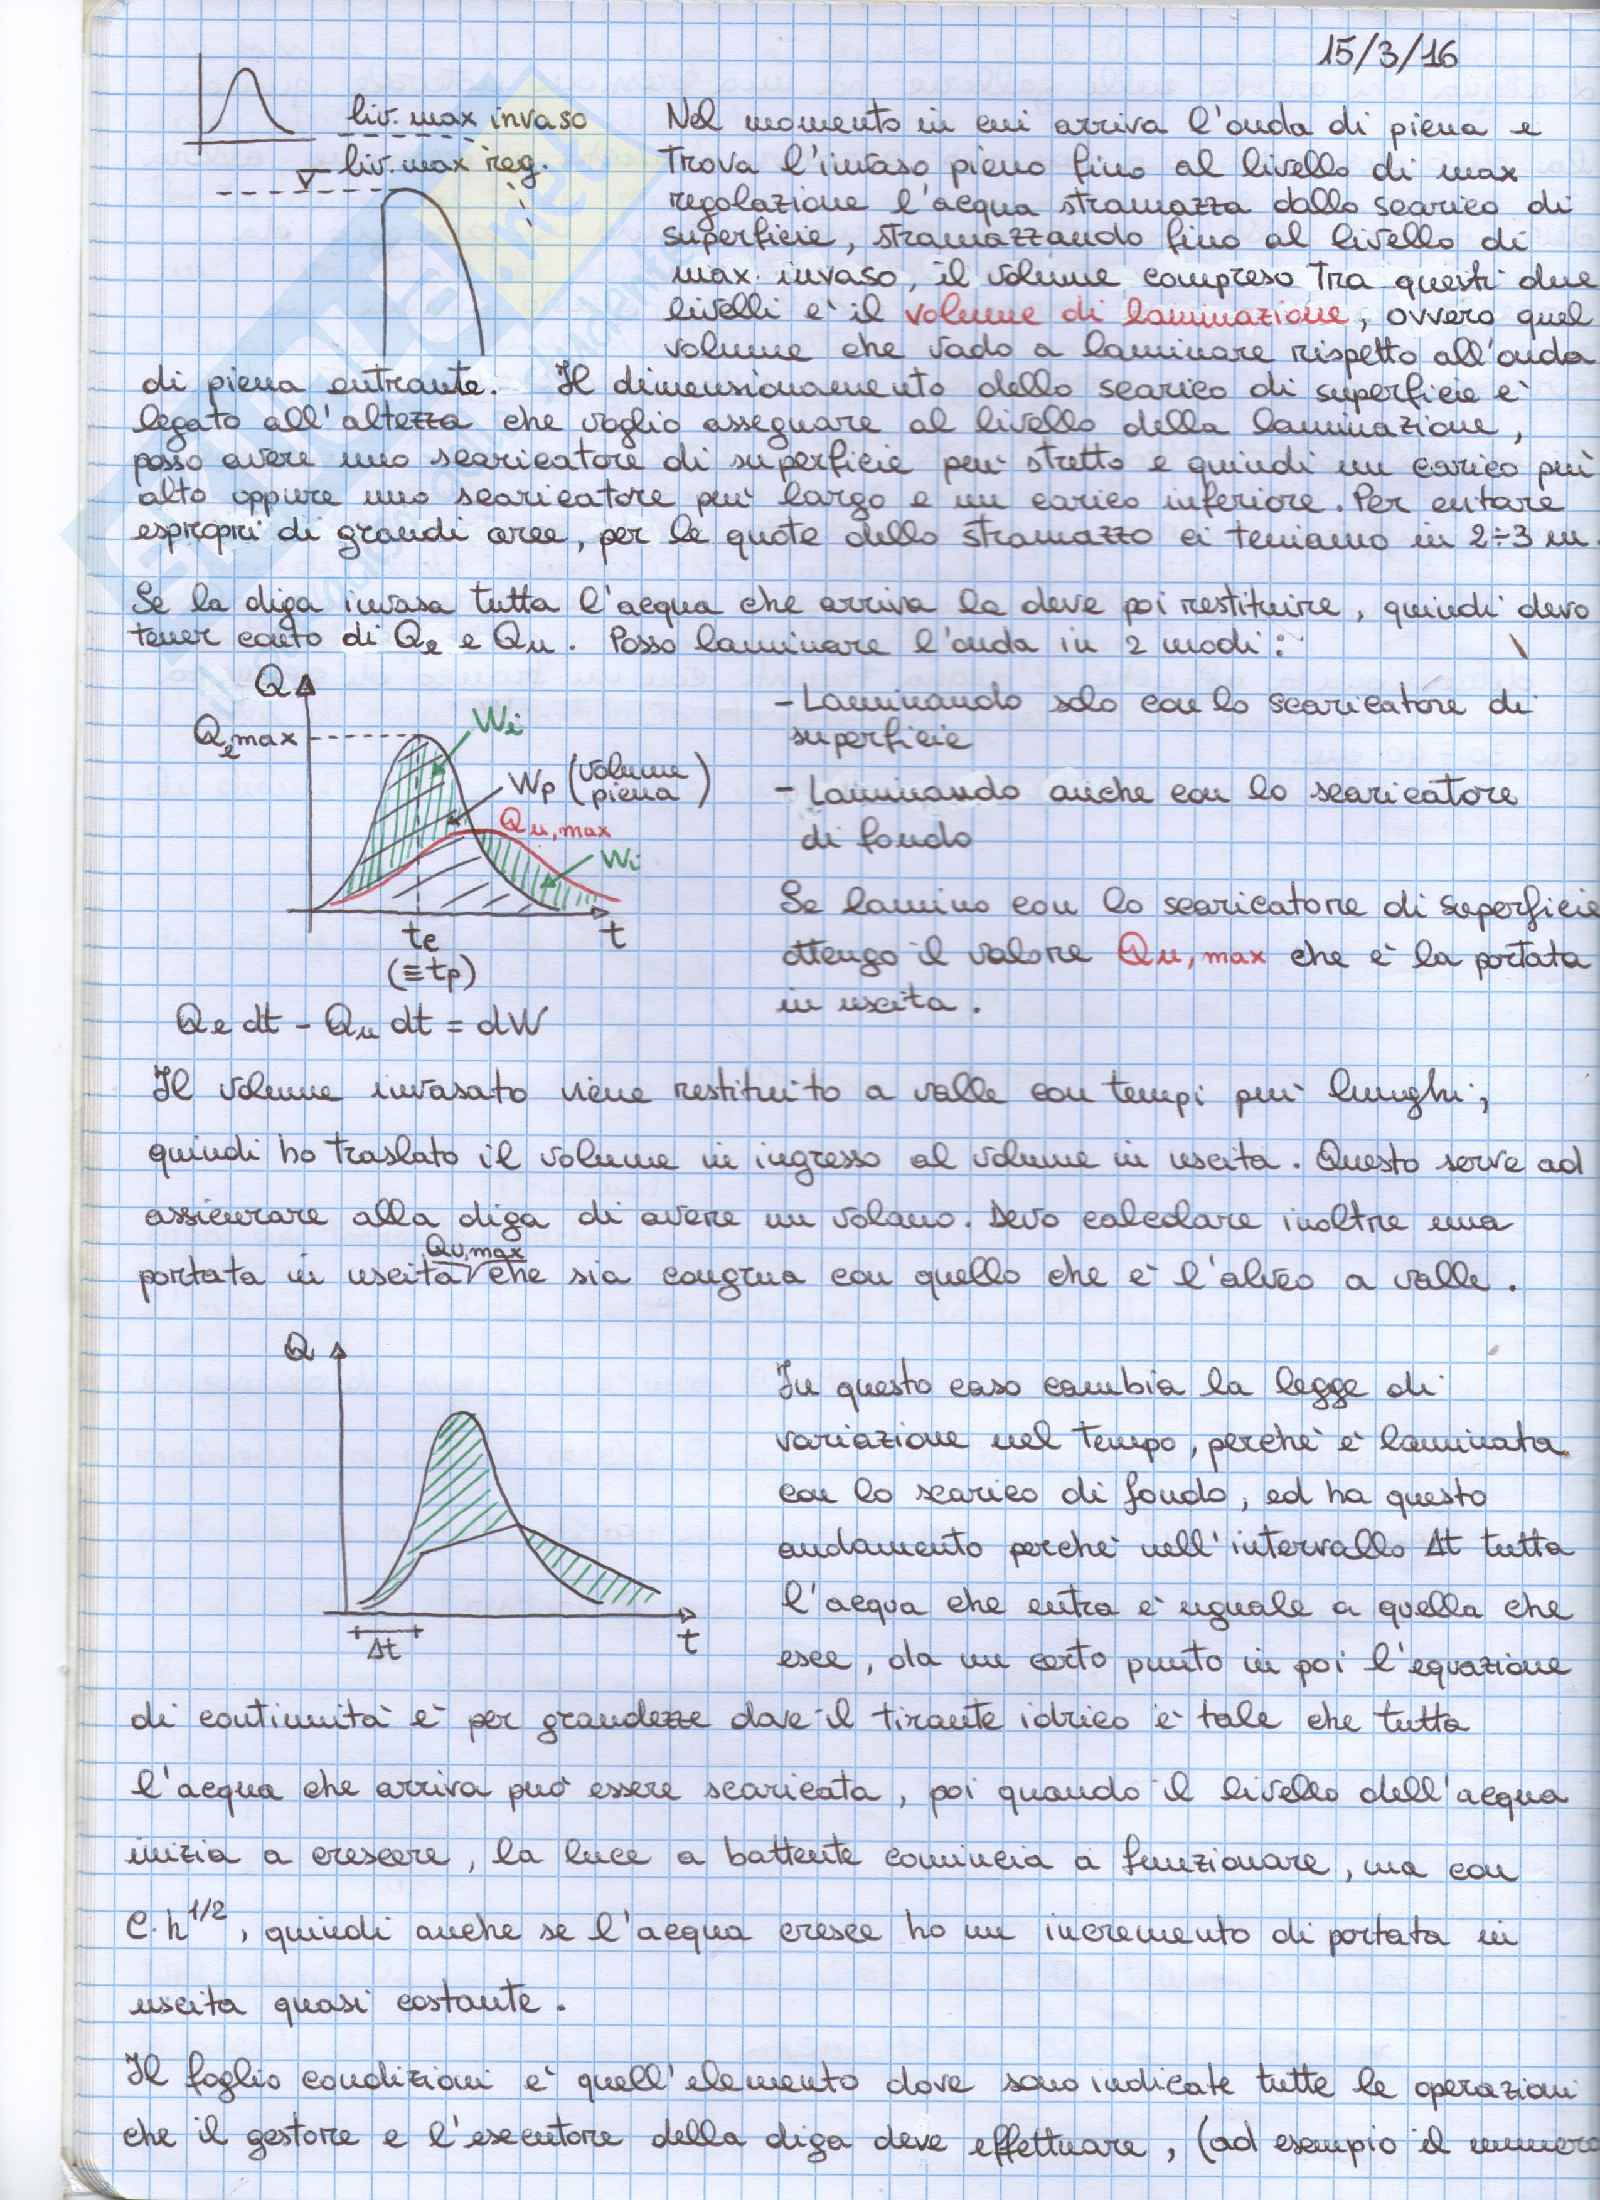 15/3/16
liv. max invaso
liv. max reg.
Nel momento in cui arriva l'onda di piena e
trova l'invaso pieno fino al livello di max
regolazione l'acqua stramazza dallo scarico di
superficie, stramazzando fino al livello di
max invaso, il volume compreso tra questi due
livelli è il volume di laminazione, ovvero quel
volume che vado a laminare rispetto all'onda
di piena entrante. Il dimensionamento dello scarico di superficie è
legato all'altezza che voglio assegnare al livello della laminazione,
posso avere uno scaricatore di superficie più stretto e quindi un carico più
alto oppure uno scaricatore più largo e un carico inferiore. Per evitare
espropri di grandi aree, per le quote dello stramazzo ci teniamo in 2÷3 m.
Se la diga invasa tutta l'acqua che arriva la deve poi restituire, quindi devo
tener conto di Qe e Qu. Posso laminare l'onda in 2 modi:
Q
Qe max
Wi
Wp (volume piena)
Qu,max
Wi
te
t
(≡tp)
- Laminando solo con lo scaricatore di
superficie
- Laminando anche con lo scaricatore
di fondo
Se lamino con lo scaricatore di superficie
ottengo il valore Qu,max che è la portata
in uscita.
Qe dt - Qu dt = dW
Il volume invasato viene restituito a valle con tempi più lunghi,
quindi ho traslato il volume in ingresso al volume in uscita. Questo serve ad
assicurare alla diga di avere un volano. Devo calcolare inoltre una
portata in uscita Qu,max che sia congrua con quello che è l'alveo a valle.
Q
Δt
t
In questo caso cambia la legge di
variazione nel tempo, perchè è laminata
con lo scarico di fondo, ed ha questo
andamento perchè nell'intervallo Δt tutta
l'acqua che entra è uguale a quella che
esce, da un certo punto in poi l'equazione
di continuità è per grandezze dove il tirante idrico è tale che tutta
l'acqua che arriva può essere scaricata, poi quando il livello dell'acqua
inizia a crescere, la luce a battente comincia a funzionare, ma con
C·h^1/2, quindi anche se l'acqua cresce ho un incremento di portata in
uscita quasi costante.
Il foglio condizioni è quell'elemento dove sono indicate tutte le operazioni
che il gestore e l'esecutore della diga deve effettuare, (ad esempio il numero